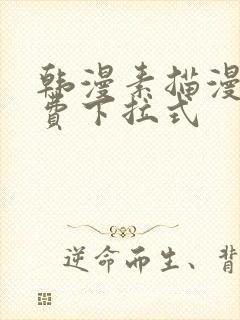 韩漫素描漫
费下拉式
逆命而生、背